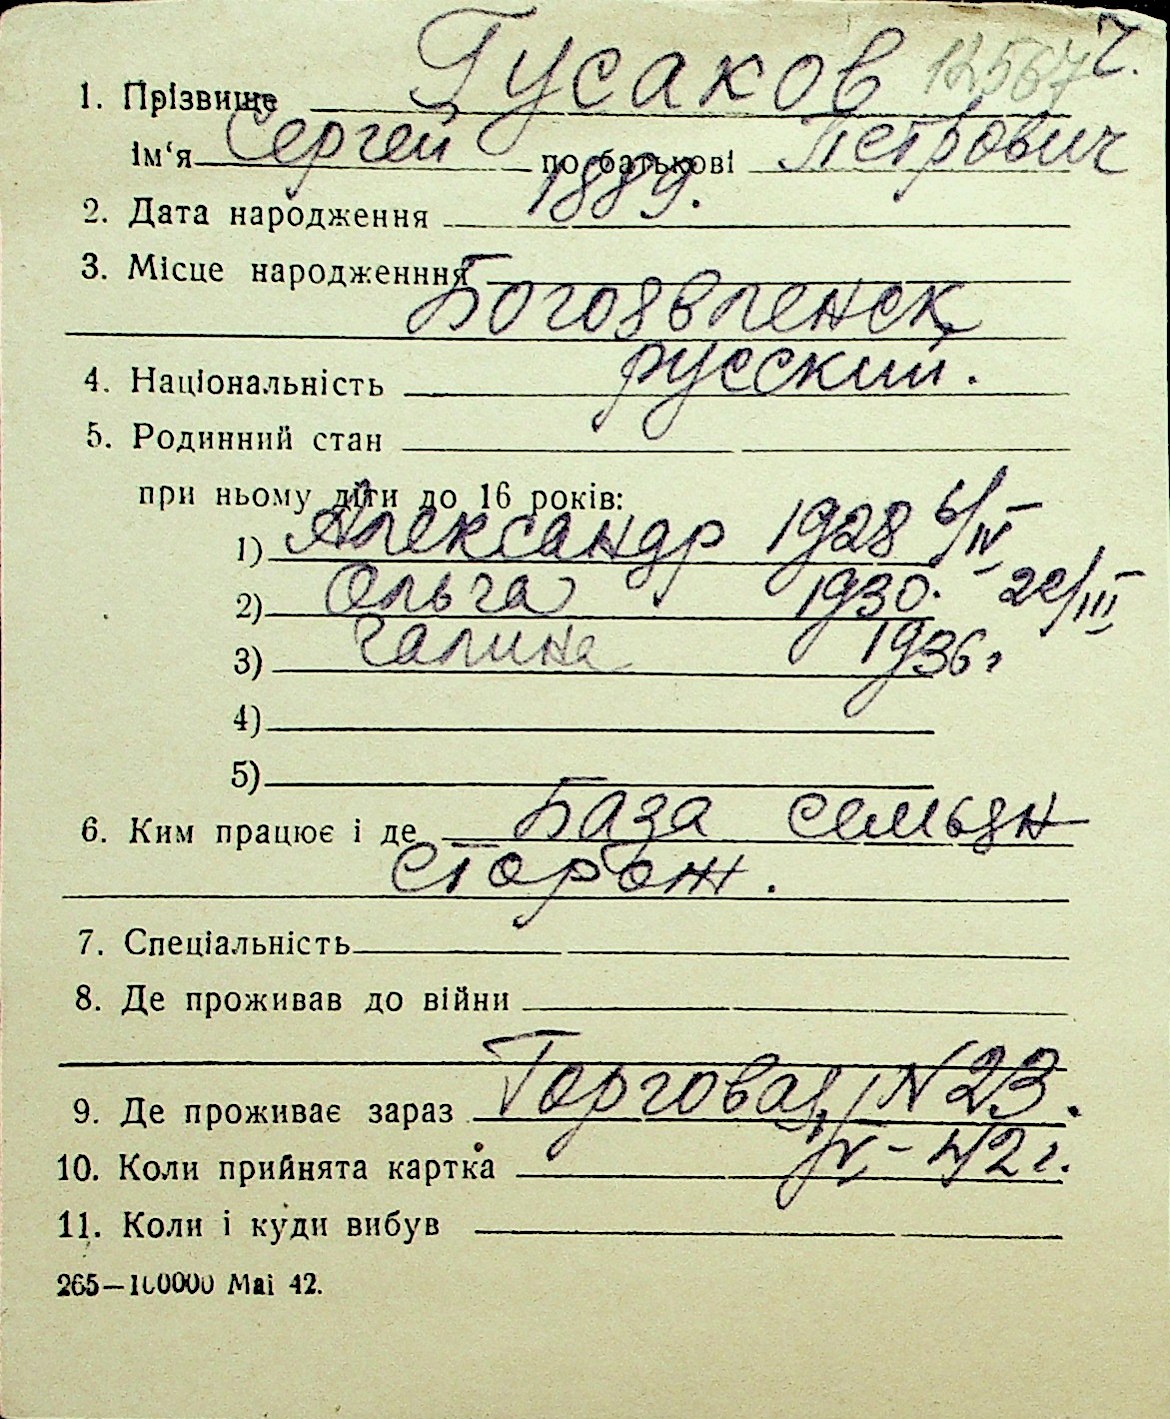 1. Прізвище Гусаков 12567 Ч.
ім‘я Сергей по батькові Петрович
2. Дата народження 1889.
3. Місце народженння
Богоявленск
4. Національність русский.
5. Родинний стан
при ньому діти до 16 років:
1) Александр 1928 6/IV
2) Ольга 1930. 22/III
3) Галина 1936 г
4)
5)
6. Ким працює і де База семьян
сторож.
7. Спеціальність
8. Де проживав до війни
9. Де проживає зараз Торговая, N 23.
10. Коли прийнята картка 42 г.
11. Коли і куди вибув
265—100000 Mai 42.